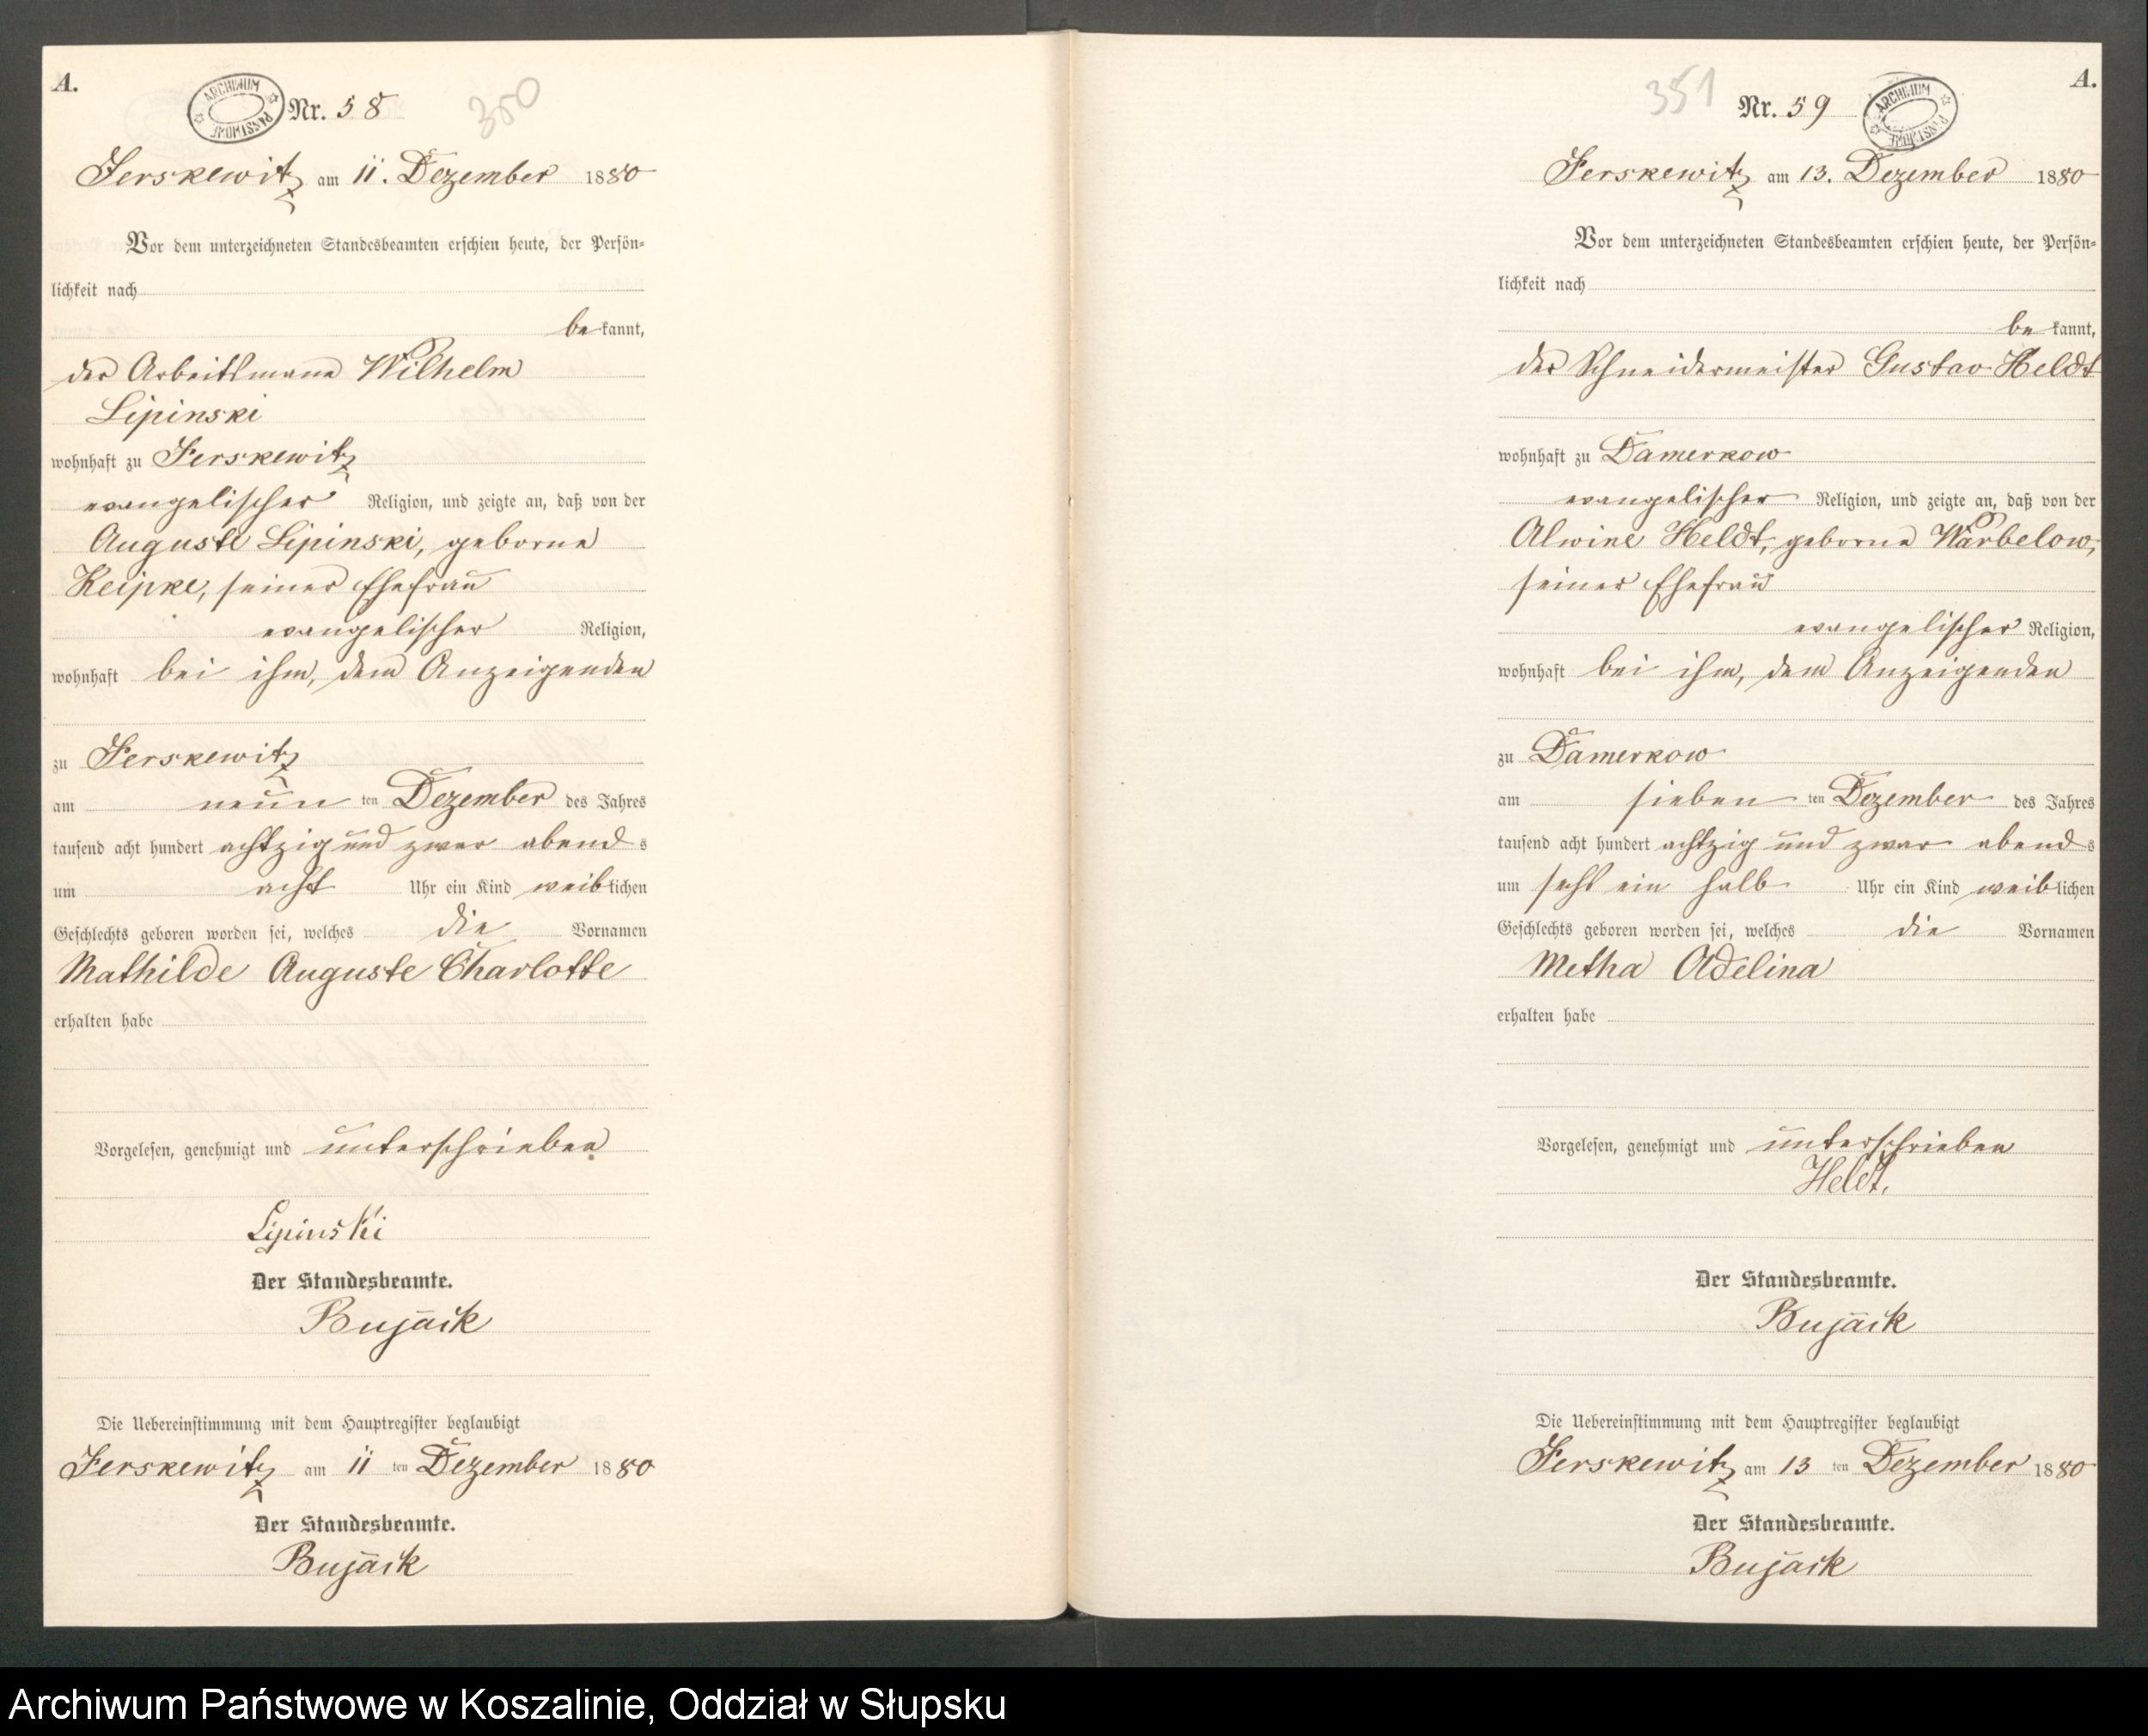 A.
ARCHIWUM PAŃSTWOWE
Nr. 58
350
Ferskewitz am 11. Dezember 1880
Vor dem unterzeichneten Standesbeamten erschien heute, der Persön-
lichkeit nach
be kannt,
der Arbeitsmann Wilhelm
Lipinski
wohnhaft zu Ferskewitz
evangelischer Religion, und zeigte an, daß von der
Auguste Lipinski, geborne
Keipke, seiner Ehefrau
evangelischer Religion,
wohnhaft bei ihm, dem Anzeigenden
zu Ferskewitz
am neun ten Dezember des Jahres
tausend acht hundert achtzig und zwar abend s
um acht Uhr ein Kind weiblichen
Geschlechts geboren worden sei, welches die Vornamen
Mathilde Auguste Charlotte
erhalten habe
Vorgelesen, genehmigt und unterschrieben
Lipinski
Der Standesbeamte.
Bujack
Die Uebereinstimmung mit dem Hauptregister beglaubigt
Ferskewitz am 11 ten Dezember 1880
Der Standesbeamte.
Bujack
351
Nr. 59
ARCHIWUM PAŃSTWOWE
A.
Ferskewitz am 13. Dezember 1880
Vor dem unterzeichneten Standesbeamten erschien heute, der Persön-
lichkeit nach
be kannt,
der Schneidermeister Gustav Heldt
wohnhaft zu Damerkow
evangelischer Religion, und zeigte an, daß von der
Alwine Heldt, geborne Warbelow,
seiner Ehefrau
evangelischer Religion,
wohnhaft bei ihm, dem Anzeigenden
zu Damerkow
am sieben ten Dezember des Jahres
tausend acht hundert achtzig und zwar abend s
um sechs ein halb Uhr ein Kind weiblichen
Geschlechts geboren worden sei, welches die Vornamen
Metha Adelina
erhalten habe
Vorgelesen, genehmigt und unterschrieben
Heldt.
Der Standesbeamte.
Bujack
Die Uebereinstimmung mit dem Hauptregister beglaubigt
Ferskewitz am 13 ten Dezember 1880
Der Standesbeamte.
Bujack
Archiwum Państwowe w Koszalinie, Oddział w Słupsku